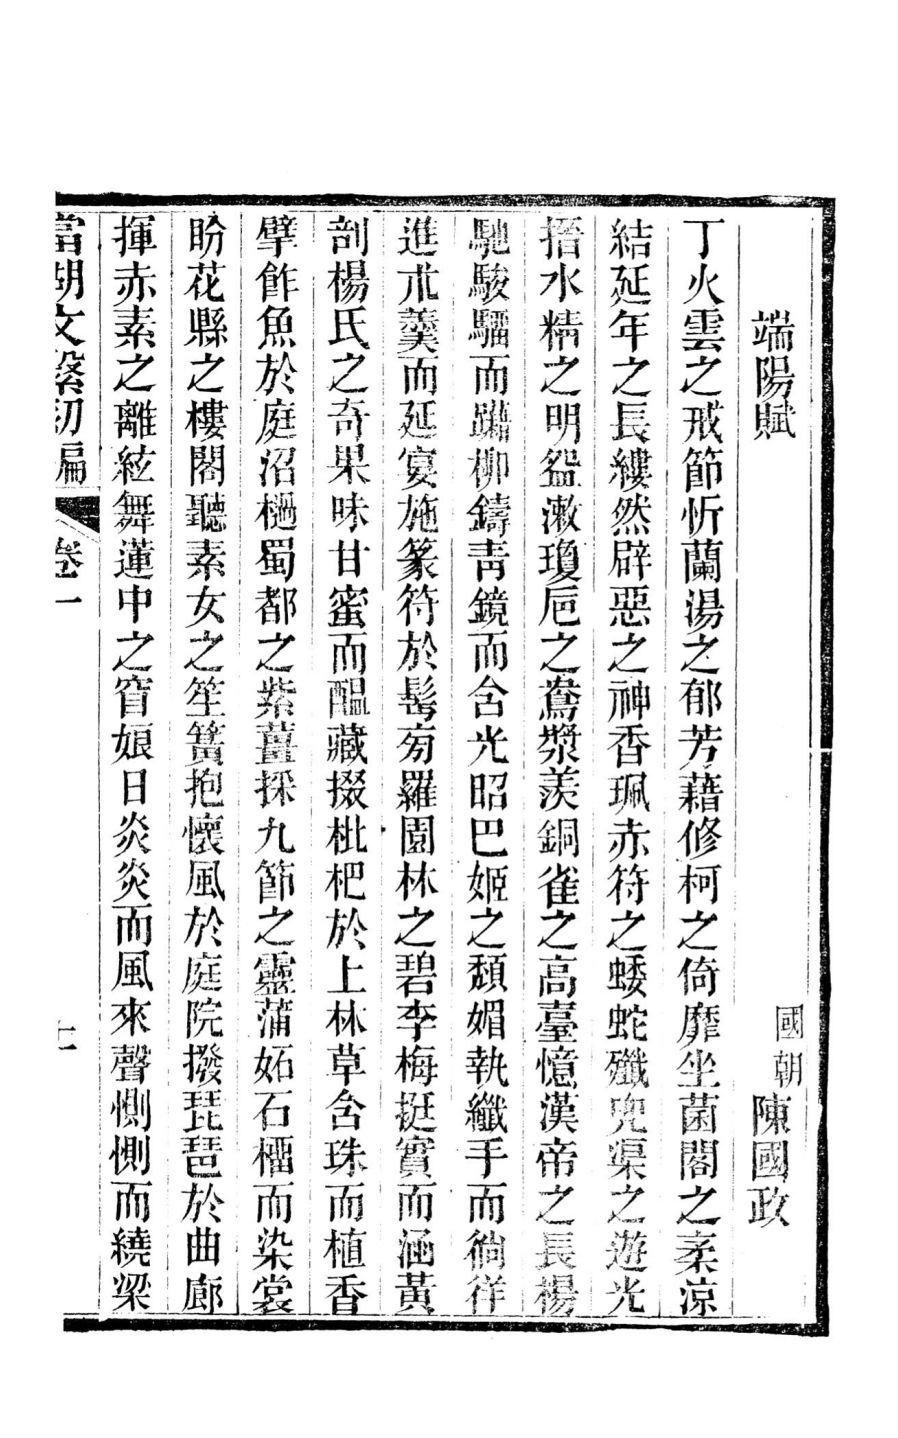 端陽賦
國朝陳國政
丁火雲之戒節忻蘭湯之郁芳藉修柯之倚靡坐菌閣之柔涼
結延年之長縷然辟惡之神香珮赤符之蜲蛇殲兜渠之遊光
搢水精之明盌漱瓊巵之鴦漿羨銅雀之高臺憶漢帝之長楊
馳駿驑而躤柳鑄青鏡而含光昭巴姬之頹媚執纖手而徜徉
進朮羹而延宴施篆符於髩旁羅園林之碧李梅挺實而涵黃
剖楊氏之奇果味甘蜜而醞藏掇枇杷於上林草含珠而植香
擘飵魚於庭沼檛蜀都之紫薑採九節之靈蒲妬石榴而染裳
盼花縣之樓閣聽素女之笙簧抱懷風於庭院撥琵琶於曲廊
揮赤素之離絃舞蓮中之窅娘日炎炎而風來聲惻惻而繞梁
當湖文繫初編
卷一